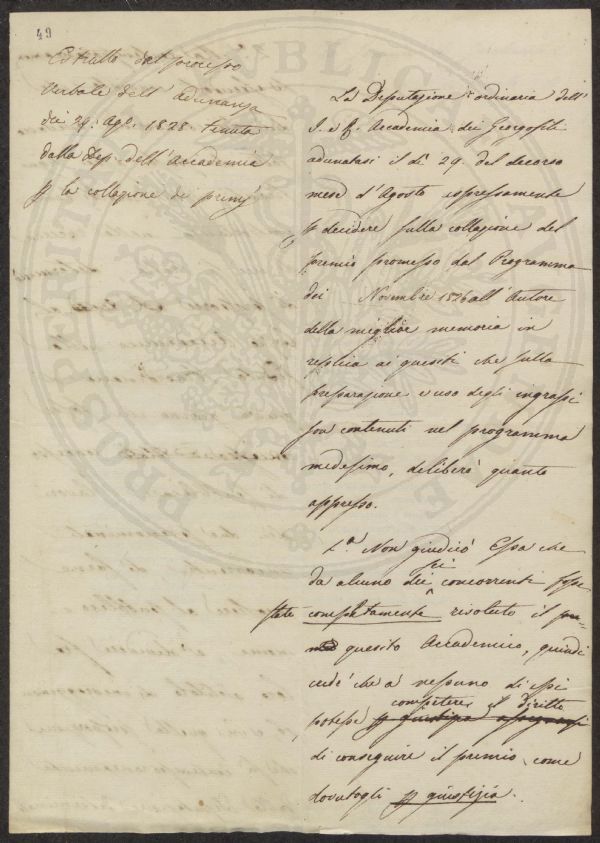 49
Estratto del processo
verbale dell' adunanza
dei 29. Ago. 1828 tenuta
dalla Dep. dell' Accademia
p la collazione dei premj
La Deputazione ordinaria dell'
I. e R. Accademia dei Georgofili
adunatasi il dì 29. del decorso
mese d'Agosto espressamente
p decidere sulla collazione del
premio promesso dal Programma
dei Novembre 1826 all' Autore
della miglior memoria in
replica ai quesiti che sulla
preparazione e uso degli ingrassi
son contenuti nel programma
medesimo, deliberò quanto
appresso.
1.a Non giudicò Essa che
da alcuno dei sei concorrenti fosse
stato completamente risoluto il
quesito Accademico, quindi
credè che a nessuno di essi
potesse competere il diritto
di conseguire il premio come
dovutogli p giustizia.